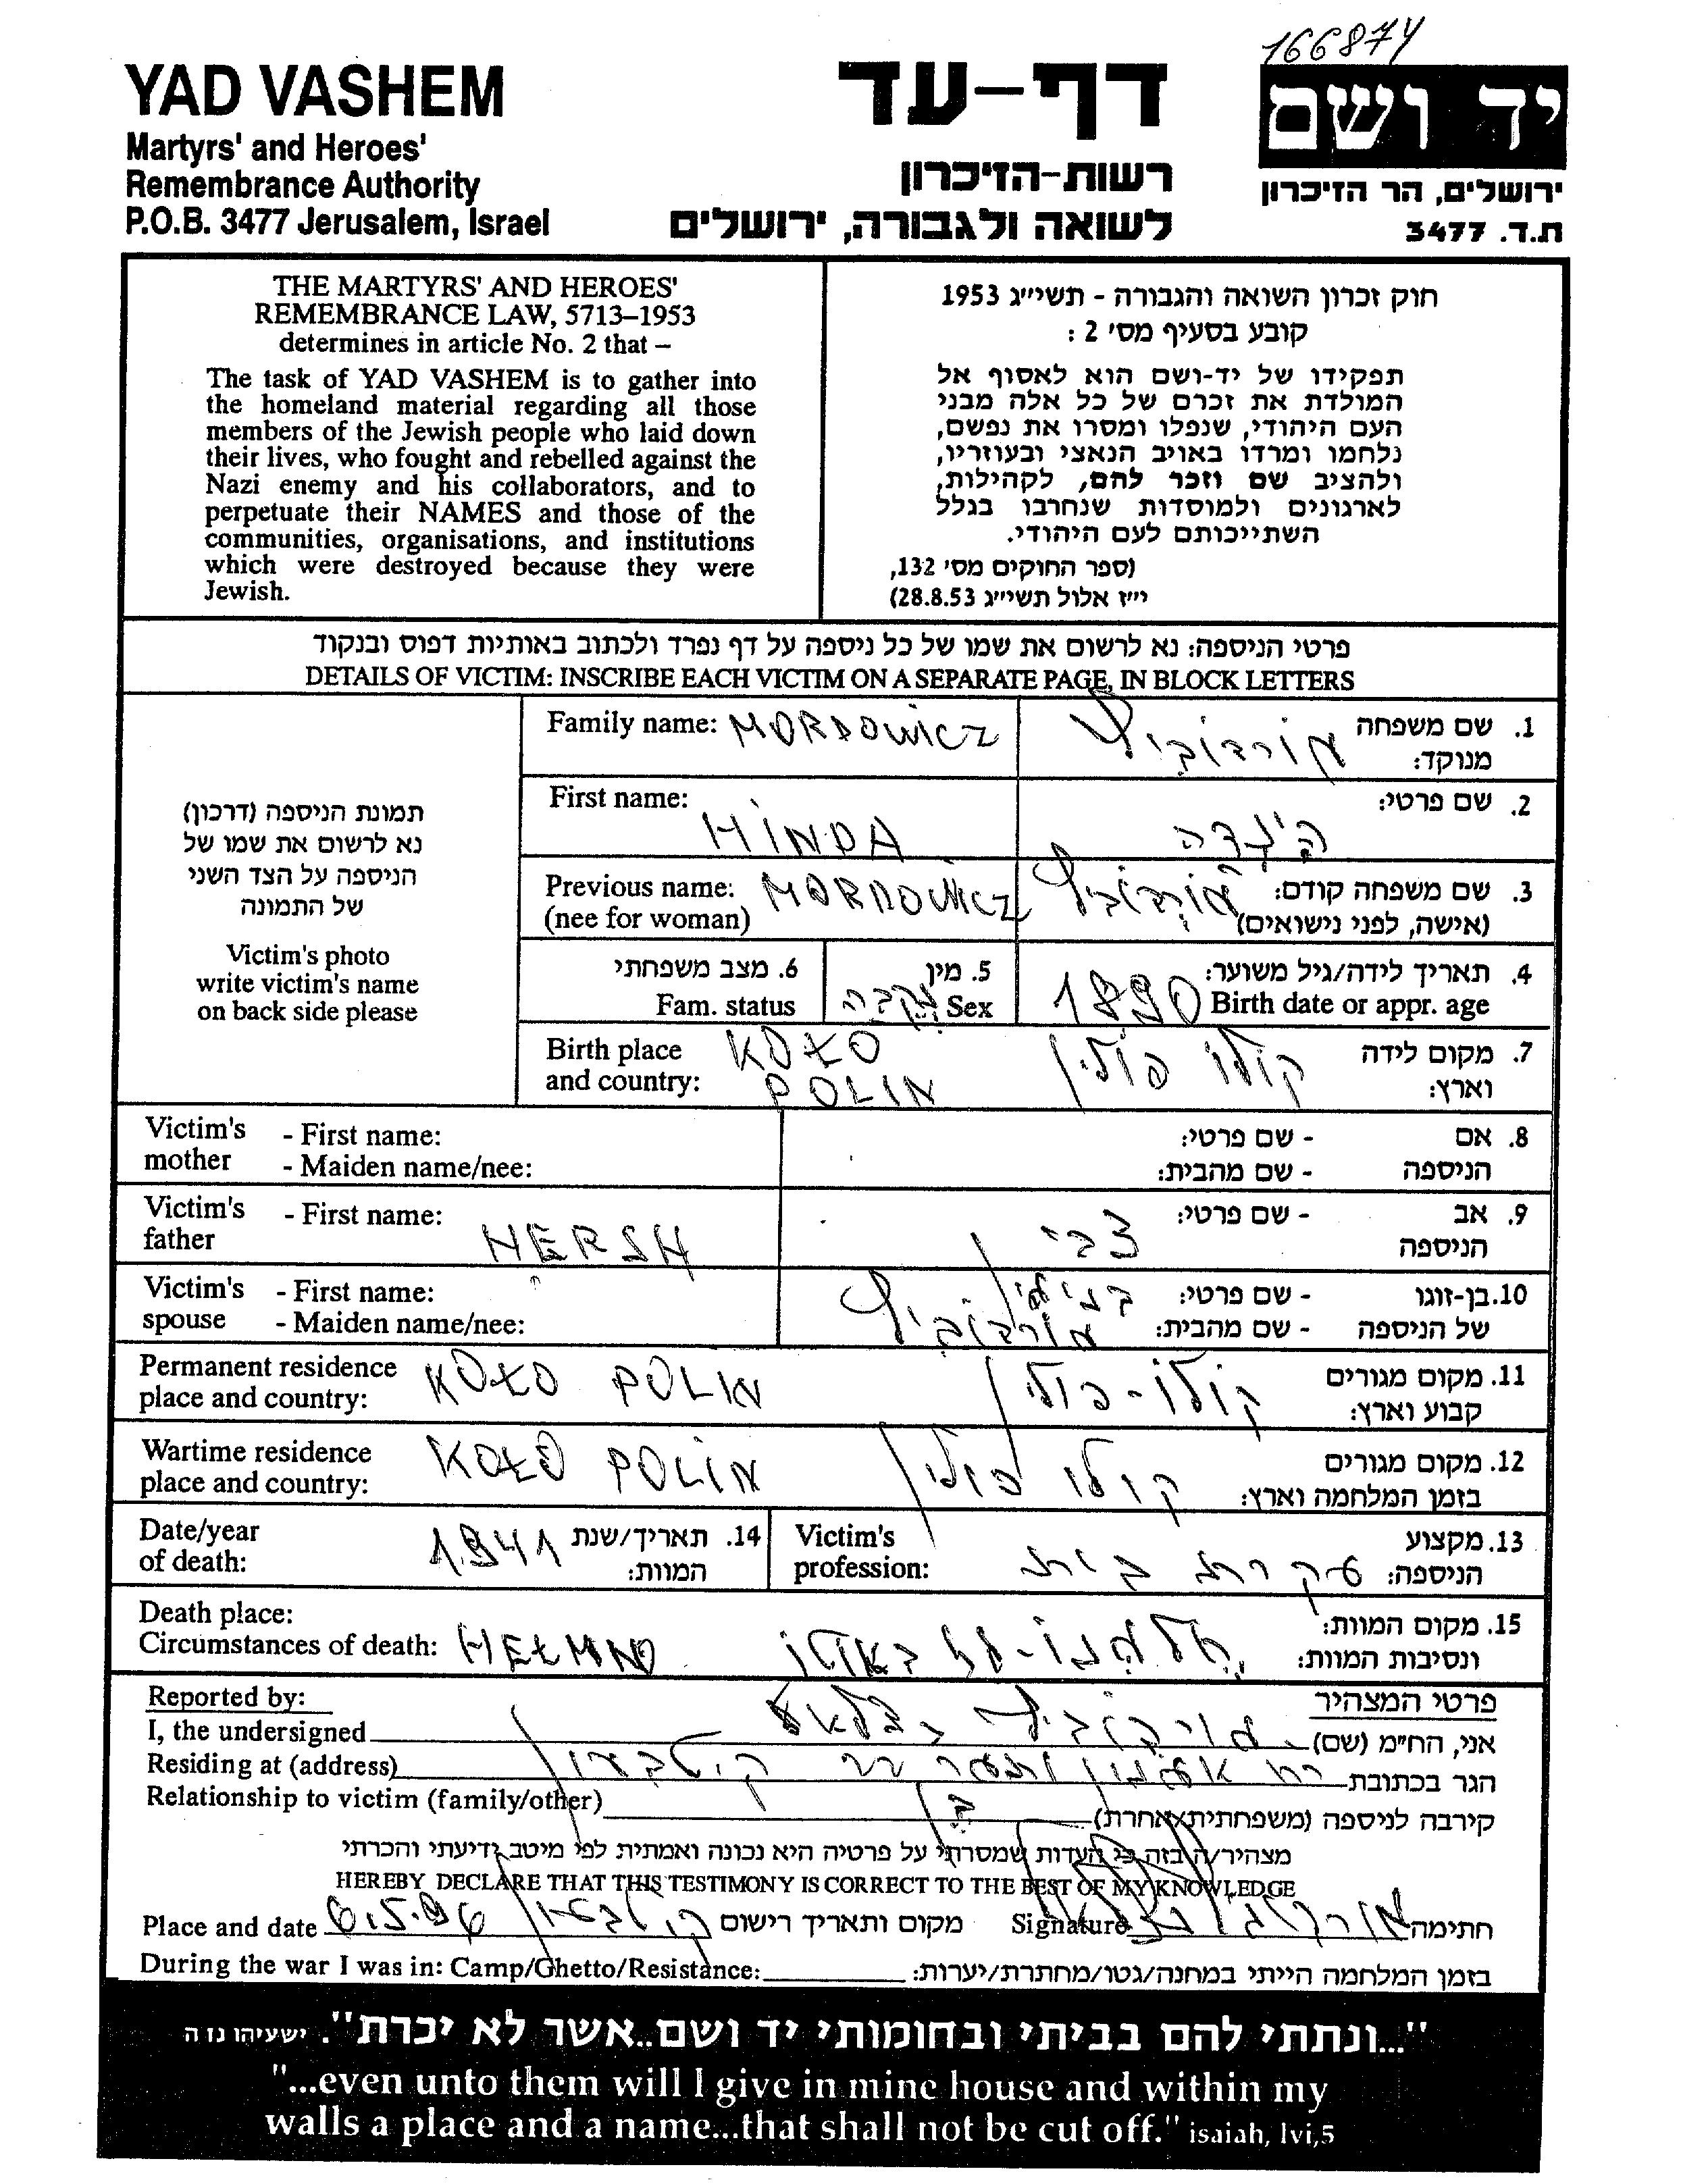 166874
YAD VASHEM
Martyrs' and Heroes'
Remembrance Authority
P.O.B. 3477 Jerusalem, Israel
דף-עד
רשות-הזיכרון
לשואה ולגבורה, ירושלים
יד ושם
ירושלים, הר הזיכרון
ת.ד. 3477
THE MARTYRS' AND HEROES'
REMEMBRANCE LAW, 5713–1953
determines in article No. 2 that –
The task of YAD VASHEM is to gather into
the homeland material regarding all those
members of the Jewish people who laid down
their lives, who fought and rebelled against the
Nazi enemy and his collaborators, and to
perpetuate their NAMES and those of the
communities, organisations, and institutions
which were destroyed because they were
Jewish.
חוק זכרון השואה והגבורה - תשי״ג 1953
קובע בסעיף מס' 2 :
תפקידו של יד-ושם הוא לאסוף אל
המולדת את זכרם של כל אלה מבני
העם היהודי, שנפלו ומסרו את נפשם,
נלחמו ומרדו באויב הנאצי ובעוזריו,
ולהציב שם וזכר להם, לקהילות,
לארגונים ולמוסדות שנחרבו בגלל
השתייכותם לעם היהודי.
(ספר החוקים מס' 132,
י״ז אלול תשי״ג 28.8.53)
פרטי הניספה: נא לרשום את שמו של כל ניספה על דף נפרד ולכתוב באותיות דפוס ובנקוד
DETAILS OF VICTIM: INSCRIBE EACH VICTIM ON A SEPARATE PAGE, IN BLOCK LETTERS
תמונת הניספה (דרכון)
נא לרשום את שמו של
הניספה על הצד השני
של התמונה
Victim's photo
write victim's name
on back side please
Family name: MORDOWICZ
1. שם משפחה מנוקד: מורדוביץ
First name: HINDA
2. שם פרטי: הינדה
Previous name: (nee for woman) MORDOWICZ
3. שם משפחה קודם: (אישה, לפני נישואים) מורדוביץ
6. מצב משפחתי Fam. status
5. מין Sex נקבה
4. תאריך לידה/גיל משוער: Birth date or appr. age 1890
Birth place and country: KOŁO POLIN
7. מקום לידה וארץ: קולו פולין
Victim's mother - First name:
- Maiden name/nee:
8. אם הניספה - שם פרטי:
- שם מהבית:
Victim's father - First name: HERSH
9. אב הניספה - שם פרטי: צבי
Victim's spouse - First name:
- Maiden name/nee:
10. בן-זוגו של הניספה - שם פרטי:
- שם מהבית: מורדוביץ
Permanent residence place and country: KOŁO POLIN
11. מקום מגורים קבוע וארץ: קולו-פולין
Wartime residence place and country: KOŁO POLIN
12. מקום מגורים בזמן המלחמה וארץ: קולו פולין
Date/year of death: 1941 14. תאריך/שנת המוות:
Victim's profession: עקרת בית 13. מקצוע הניספה:
Death place:
Circumstances of death: HEŁMNO
15. מקום המוות:
ונסיבות המוות:
Reported by:
פרטי המצהיר
I, the undersigned
אני, הח״מ (שם) מורדוביץ בצלאל
Residing at (address)
הגר בכתובת
Relationship to victim (family/other)
קירבה לניספה (משפחתית/אחרת) בן
מצהיר/ה בזה כי העדות שמסרתי על פרטיה היא נכונה ואמתית לפי מיטב ידיעתי והכרתי
HEREBY DECLARE THAT THIS TESTIMONY IS CORRECT TO THE BEST OF MY KNOWLEDGE
Place and date 6.5.96 מקום ותאריך רישום
Signature מורדוביץ בצלאל חתימה
During the war I was in: Camp/Ghetto/Resistance: בזמן המלחמה הייתי במחנה/גטו/מחתרת/יערות:
"...ונתתי להם בביתי ובחומותי יד ושם..אשר לא יכרת". ישעיהו נו ה
"...even unto them will I give in mine house and within my
walls a place and a name...that shall not be cut off." isaiah, lvi,5